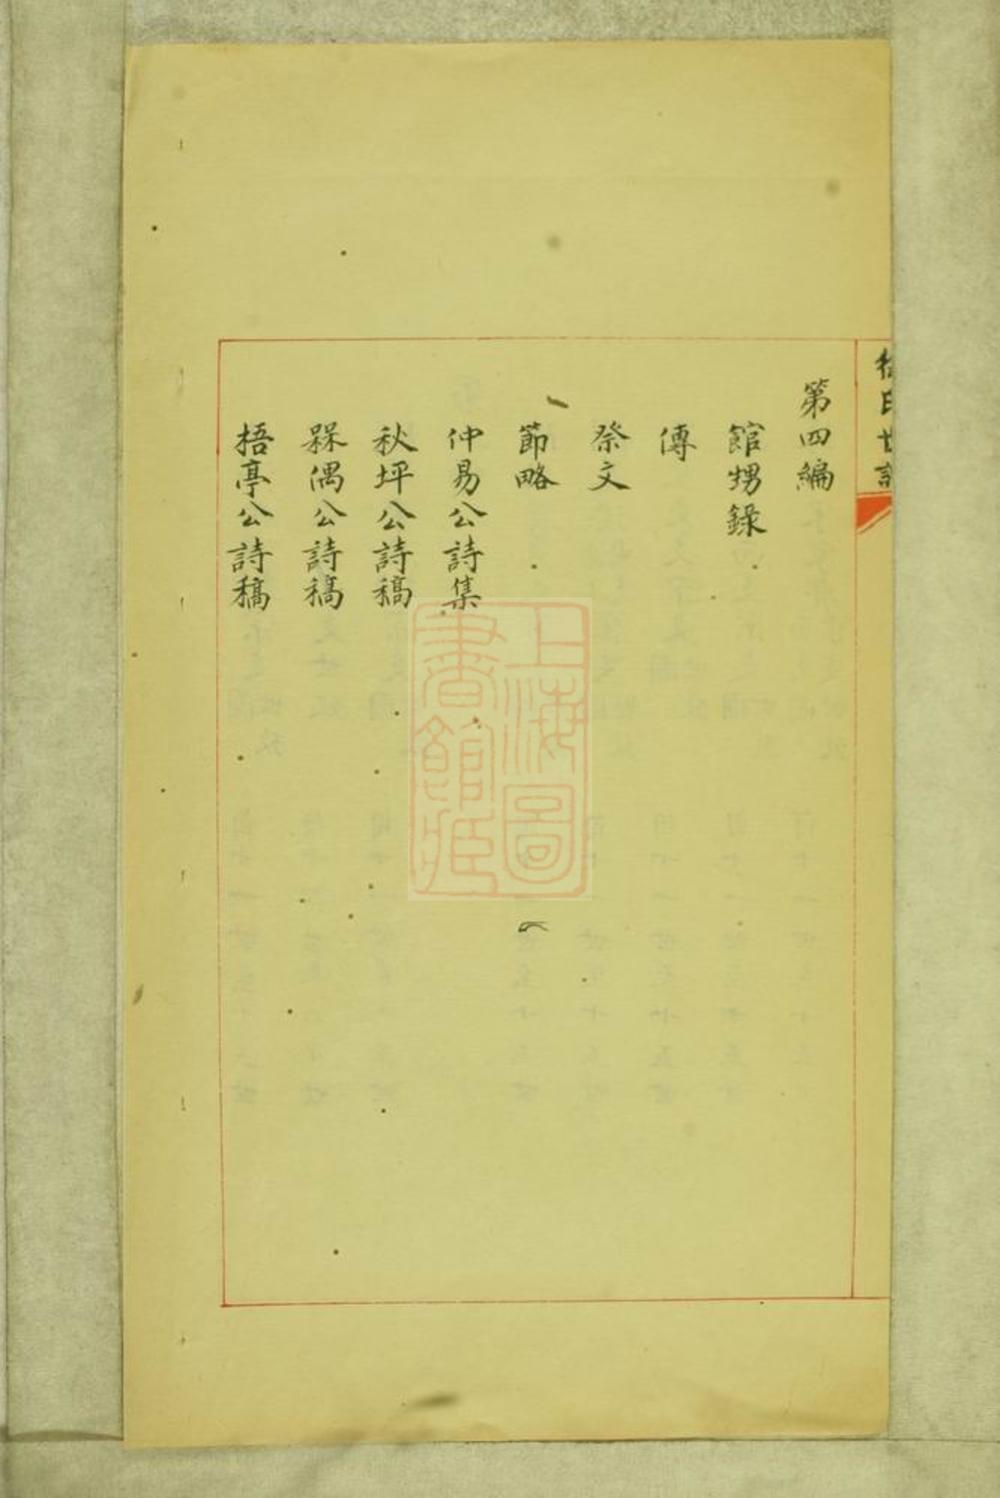 徐氏世譜
第四編
館甥錄
傳
祭文
節略
仲易公詩集
秋坪公詩稿
槑偶公詩稿
梧亭公詩稿
上海圖書館藏